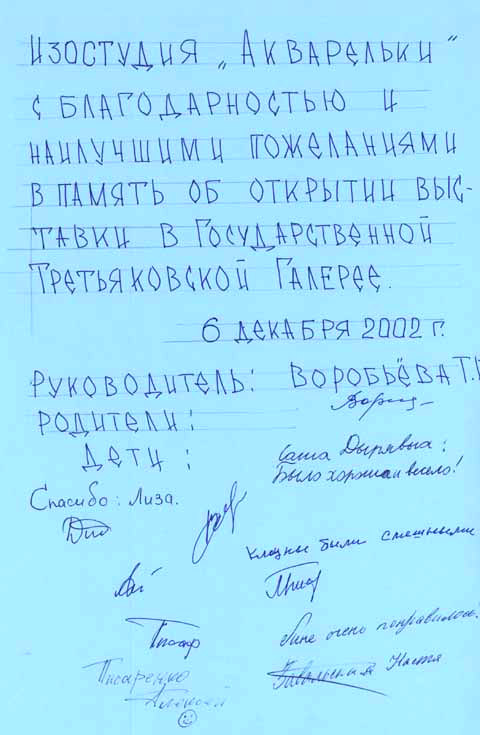 ИЗОСТУДИЯ „АКВАРЕЛЬКИ“
С БЛАГОДАРНОСТЬЮ И
НАИЛУЧШИМИ ПОЖЕЛАНИЯМИ
В ПАМЯТЬ ОБ ОТКРЫТИИ ВЫС-
ТАВКИ В ГОСУДАРСТВЕННОЙ
ТРЕТЬЯКОВСКОЙ ГАЛЕРЕЕ.
6 ДЕКАБРЯ 2002 Г.
РУКОВОДИТЕЛЬ: ВОРОБЬЁВА Т.
РОДИТЕЛИ:
ДЕТИ:
Саша Дырявых:
Было хорошо и весело!
Спасибо: Лиза.
Клоуны были смешными
Мне очень понравилось!
Писаренко
Алексей
Настя